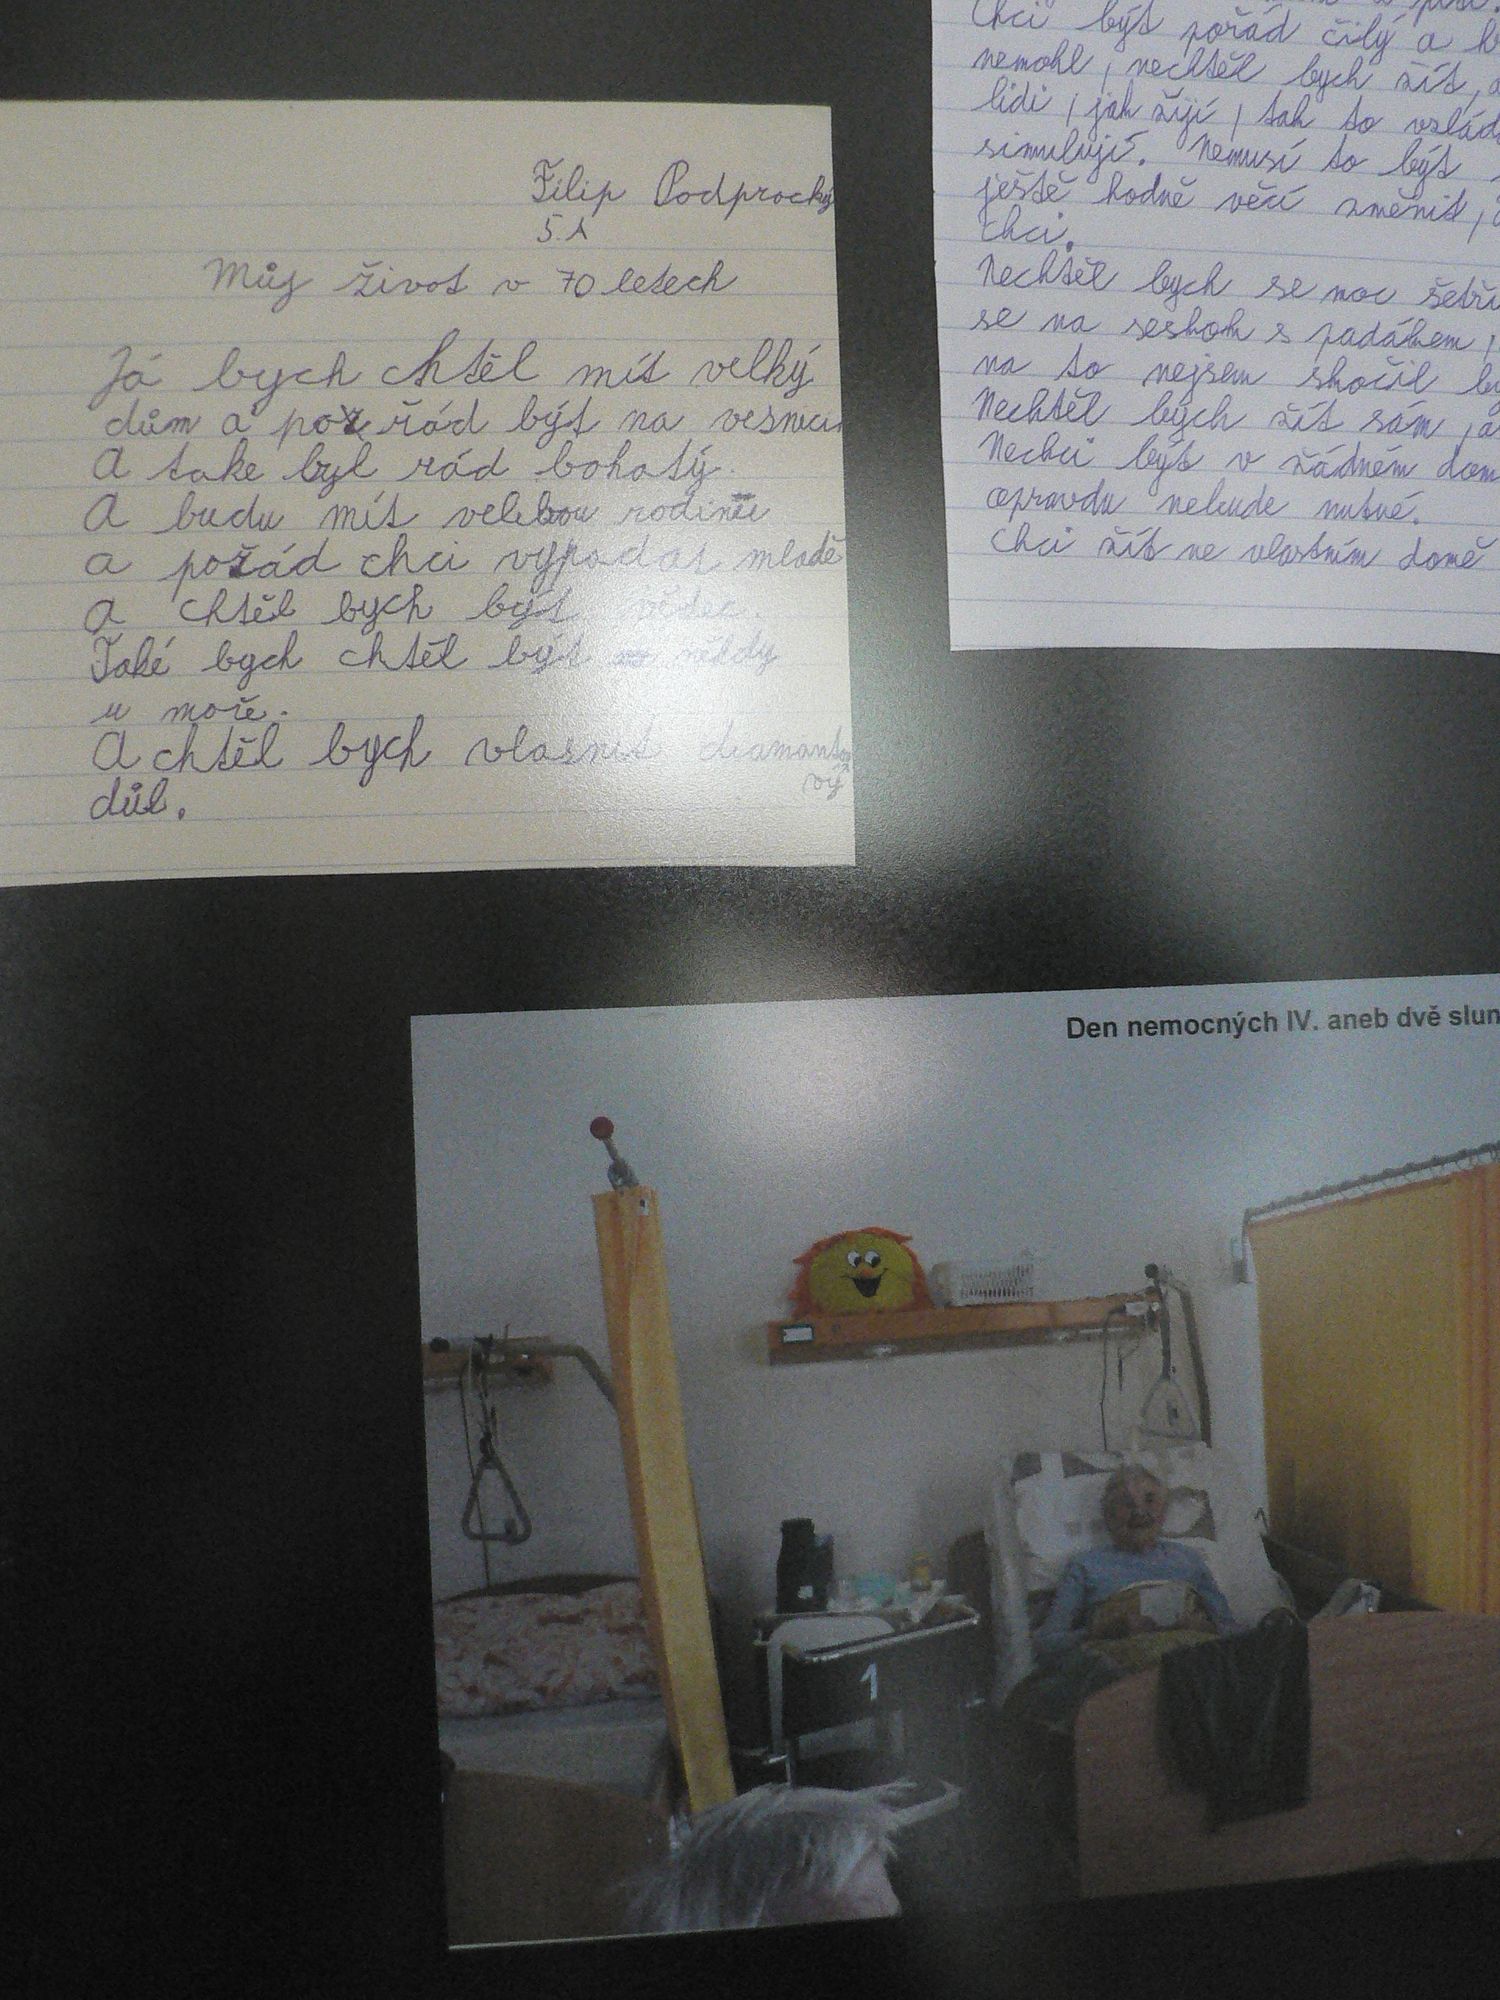 Filip Podprocký
5.A
Můj život v 70 letech
Já bych chtěl mít velký
dům a pořád být na vesnici
A take byl rád bohatý.
A budu mít velkou rodinu
a pořád chci vypadat mladě
a chtěl bych být vědec.
Také bych chtěl být někdy
u moře.
A chtěl bych vlasnit diamanto
vý
důl.
Chci být pořád čilý a
nemohl, nechtěl bych žít,
lidi, jak žijí, tak to
simulují. Nemusí to být
ještě hodně věcí změnit,
chci.
Nechtěl bych se moc
se na seskok s padákem,
na to nejsem skočil
Nechtěl bych žít sám,
Nechci být v žádném
opravdu nebude nutné.
Chci žít ve vlastním domě
Den nemocných IV. aneb dvě slun
1